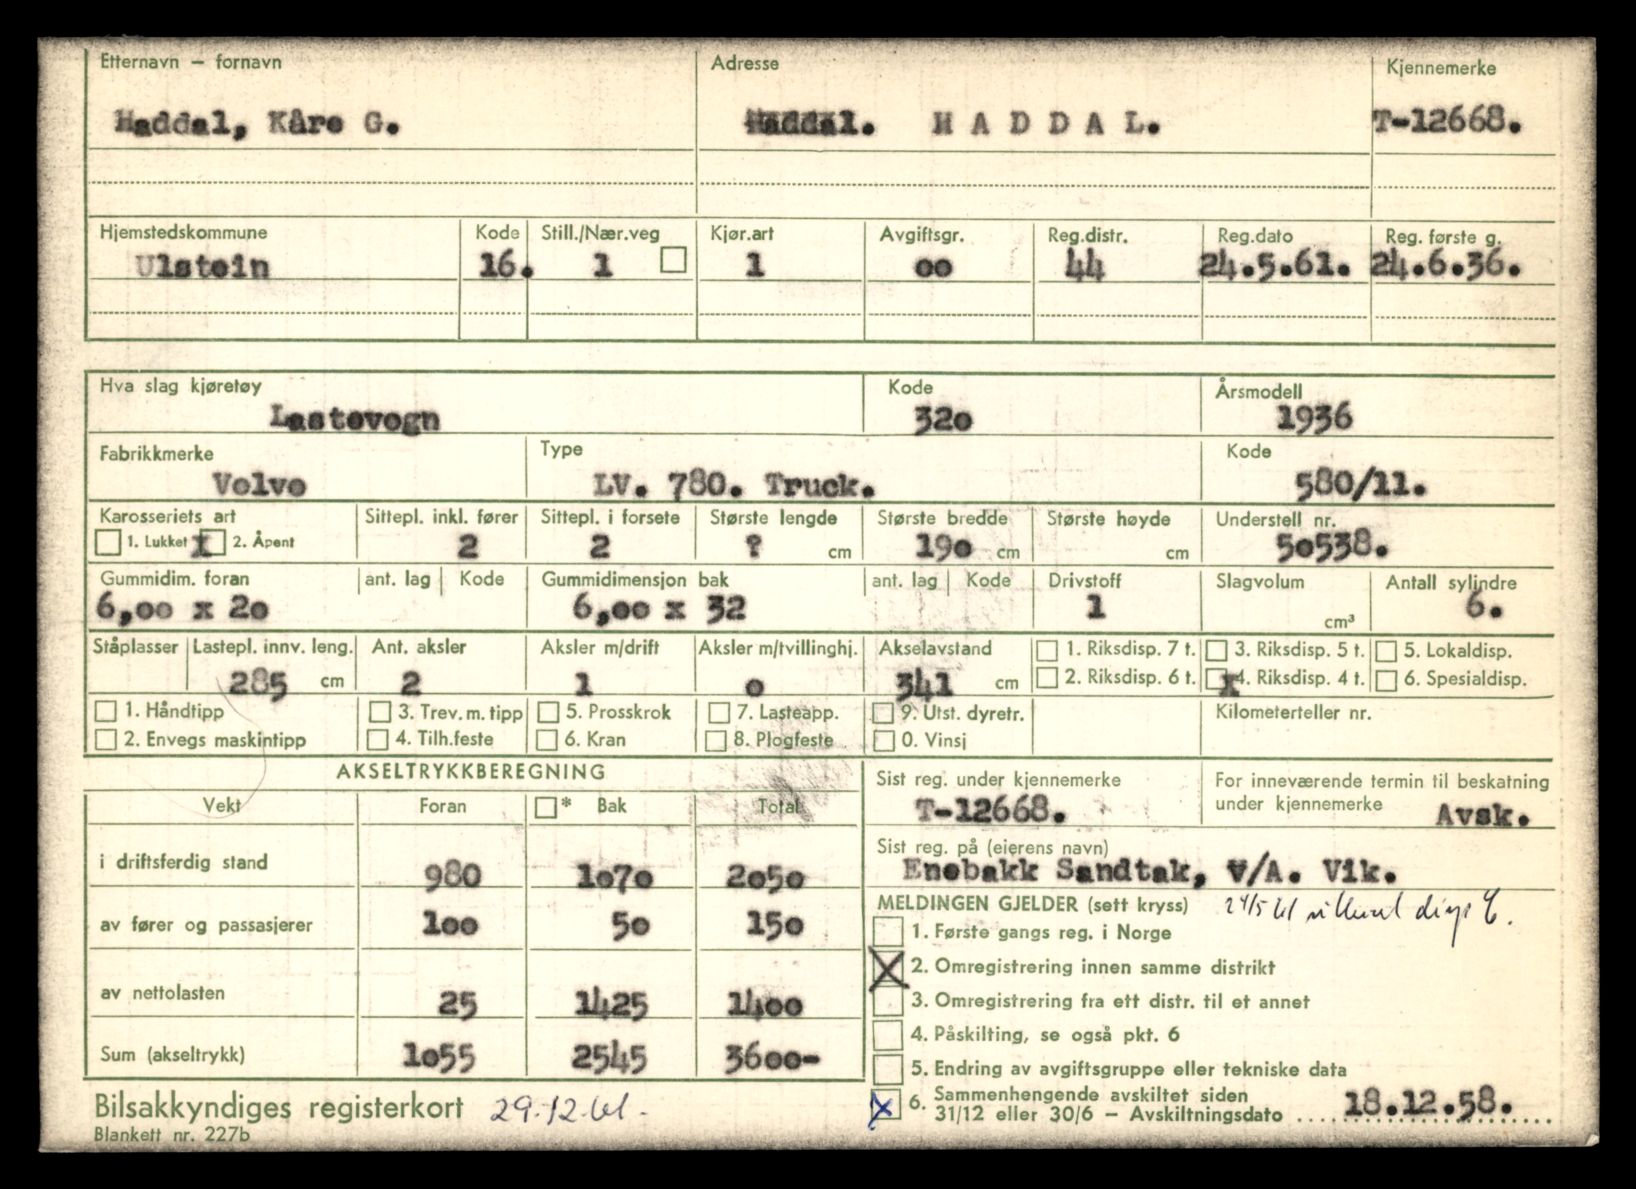 Etternavn – fornavn Adresse Kjennemerke
Haddal, Kåre G. Haddal. H A D D A L. T-12668.
Hjemstedskommune Kode Still./Nær.veg Kjør.art Avgiftsgr. Reg.distr. Reg.dato Reg. første g.
Ulstein 16. 1 1 oo 44 24.5.61. 24.6.36.
Hva slag kjøretøy Kode Årsmodell
Lastevogn 32o 1936
Fabrikkmerke Type Kode
Volvo LV. 780. Truck. 580/11.
Karosseriets art Sittepl. inkl. fører Sittepl. i forsete Største lengde Største bredde Største høyde Understell nr.
1. Lukket x 2. Åpent 2 2 ? cm 19o cm cm 5o538.
Gummidim. foran ant. lag Kode Gummidimensjon bak ant. lag Kode Drivstoff Slagvolum Antall sylindre
6,oo x 2o 6,oo x 32 1 cm³ 6.
Ståplasser Lastepl. innv. leng. Ant. aksler Aksler m/drift Aksler m/tvillinghj. Akselavstand 1. Riksdisp. 7 t. 3. Riksdisp. 5 t. 5. Lokaldisp.
285 cm 2 1 o 341 cm 2. Riksdisp. 6 t. x 4. Riksdisp. 4 t. 6. Spesialdisp.
1. Håndtipp 3. Trev. m. tipp 5. Prosskrok 7. Lasteapp. 9. Utst. dyretr. Kilometerteller nr.
2. Envegs maskintipp 4. Tilh.feste 6. Kran 8. Plogfeste 0. Vinsj
AKSELTRYKKBEREGNING
Vekt Foran * Bak Total
i driftsferdig stand 980 1o7o 2o5o
av fører og passasjerer 1oo 5o 15o
av nettolasten 25 1425 14oo
Sum (akseltrykk) 1o55 2545 36oo-
Sist reg. under kjennemerke For inneværende termin til beskatning
under kjennemerke
T-12668. Avsk.
Sist reg. på (eierens navn)
Enebakk Sandtak, v/A. Vik.
MELDINGEN GJELDER (sett kryss) 24/5 61
1. Første gangs reg. i Norge
X 2. Omregistrering innen samme distrikt
3. Omregistrering fra ett distr. til et annet
4. Påskilting, se også pkt. 6
5. Endring av avgiftsgruppe eller tekniske data
x 6. Sammenhengende avskiltet siden
31/12 eller 30/6 – Avskiltningsdato 18.12.58.
Bilsakkyndiges registerkort 29.12.61.
Blankett nr. 227b